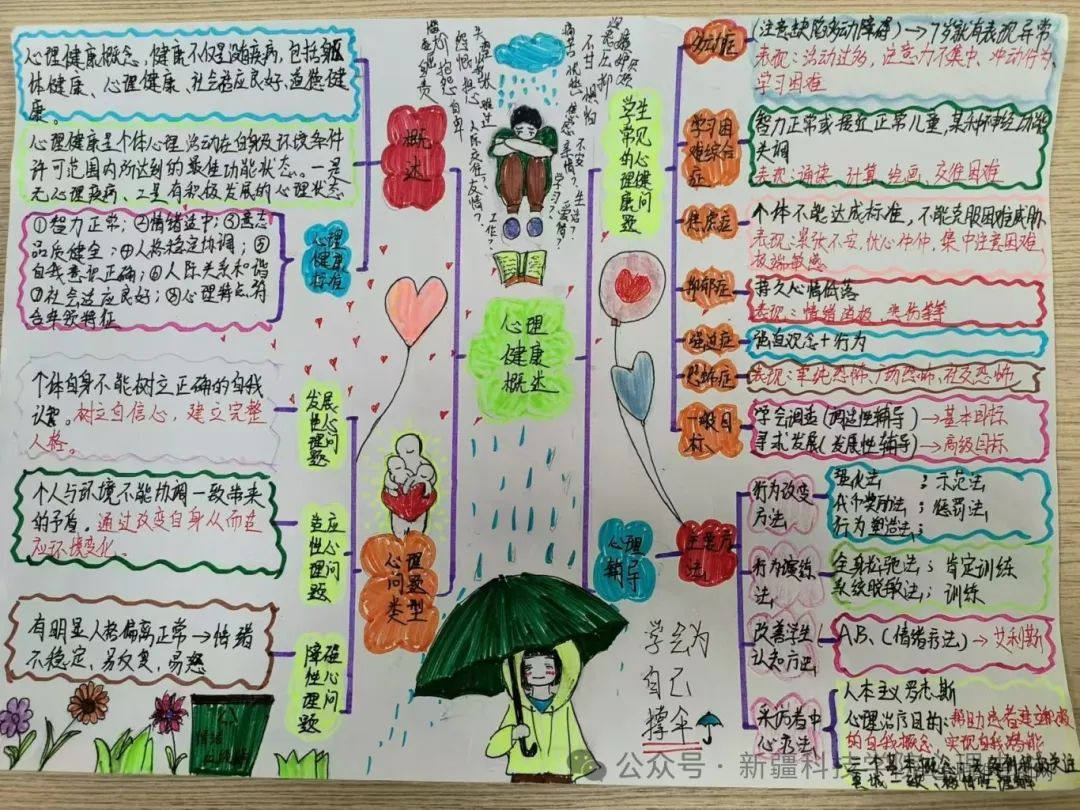 心理健康概述
概述
心理健康概念，健康不仅是没有疾病，包括躯
体健康、心理健康、社会适应良好、道德健
康。
心理健康是个体心理活动在自身及环境条件
许可范围内所达到的最佳功能状态。一是
无心理疾病，二是有积极发展的心理状态
心理健康标准
①智力正常；②情绪适中；③意志
品质健全；④人格稳定协调；⑤
自我意识正确；⑥人际关系和谐
⑦社会适应良好；⑧心理特点符
合年龄特征
心理问题类型
发展性心理问题
个体自身不能树立正确的自我
认知。树立自信心，建立完整
人格。
适应性心理问题
个人与环境不能协调一致带来
的矛盾。通过改变自身从而适
应环境变化。
障碍性心理问题
有明显人格偏离正常→情绪
不稳定、易反复、易怒
学生常见的心理健康问题
多动症
(注意缺陷多动障碍)→7岁就有表现异常
表现：活动过多，注意力不集中、冲动行为、
学习困难
学习困难综合症
智力正常或接近正常儿童，某种神经功能
失调
表现：诵读、计算、绘画、交往困难
焦虑症
个体不能达成标准，不能克服困难威胁
表现：紧张不安，忧心忡忡，集中注意困难
极端敏感
抑郁症
持久心情低落
表现：情绪消极、悲伤等
强迫症
强迫观念+行为
恐怖症
表现：单纯恐怖、广场恐怖、社交恐怖
心理辅导
一般目标
学会调适(调适性辅导)→基本目标
寻求发展(发展性辅导)→高级目标
主要方法
行为改变方法
强化法；示范法
代币奖励法；惩罚法
行为塑造法；
行为演练法
全身松弛法；肯定训练
系统脱敏法；训练
改善学生认知方法
A、B、(情绪疗法)→艾利斯
来访者中心疗法
人本主义罗杰斯
心理治疗目的：帮助患者建立
的自我概念，实现自我潜能
学会为
自己
撑伞
公众号·新疆科技